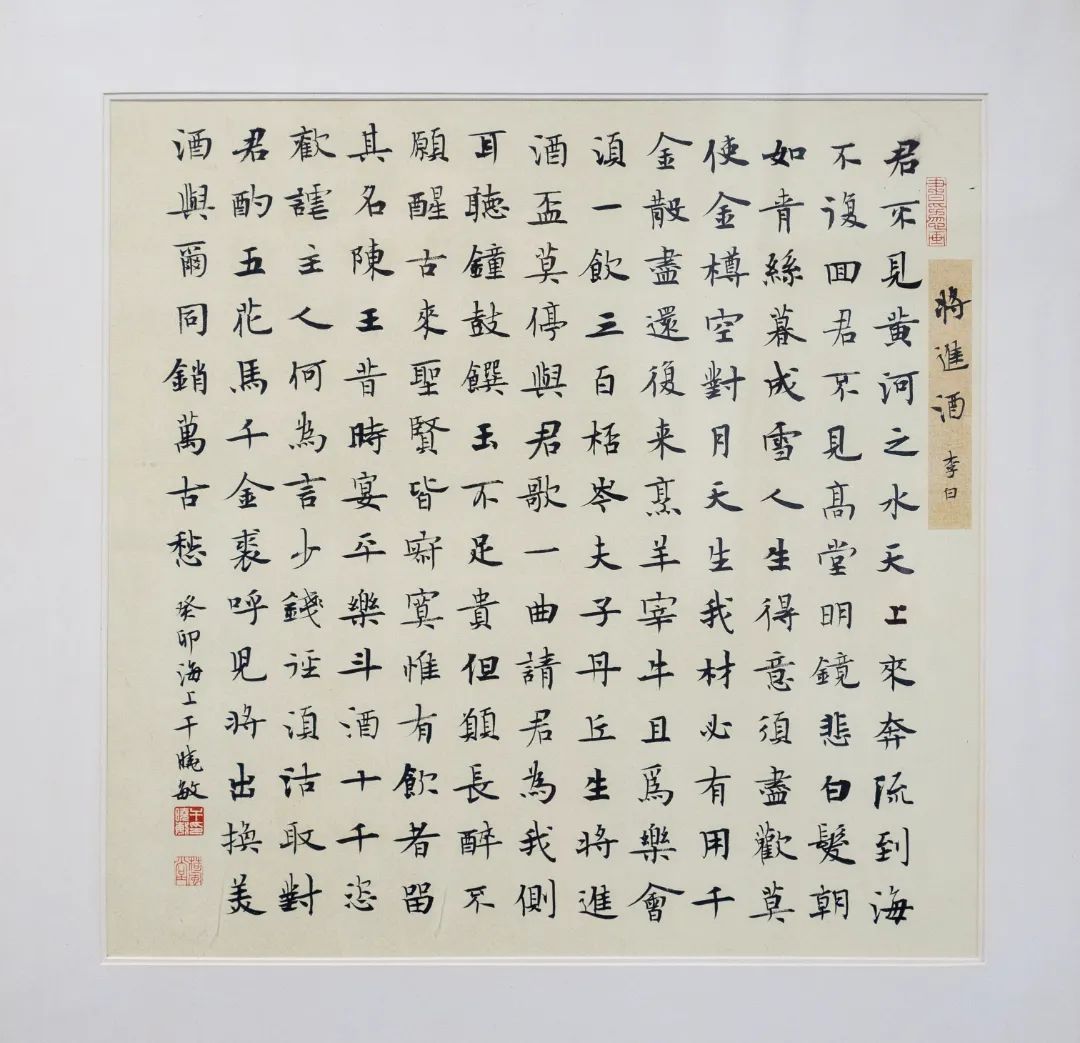 將進酒 李白
君不見黄河之水天上來奔流到海
不復回君不見高堂明鏡悲白髮朝
如青絲暮成雪人生得意須盡歡莫
使金樽空對月天生我材必有用千
金散盡還復来烹羊宰牛且爲樂會
湏一飲三百杯岑夫子丹丘生將進
酒盃莫停與君歌一曲請君為我側
耳聽鐘鼓饌玉不足貴但願長醉不
願醒古來聖賢皆寂寞惟有飲者留
其名陳王昔時宴平樂斗酒十千恣
歡謔主人何為言少錢徑湏沽取對
君酌五花馬千金裘呼兒將出換美
酒與爾同銷萬古愁 癸卯海上干曉敏